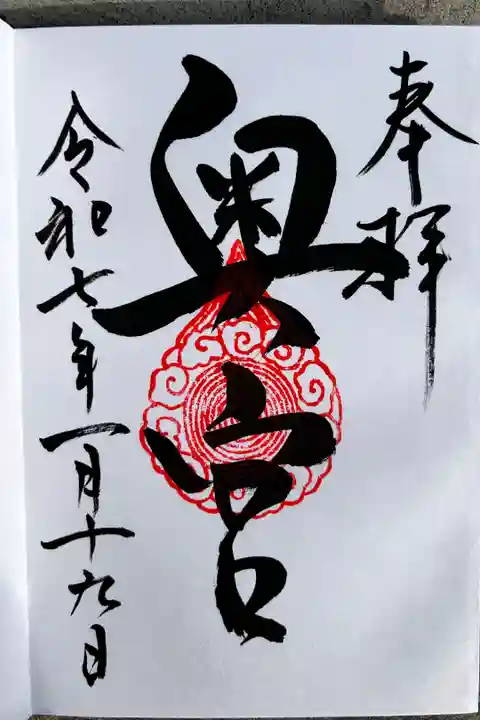 奉拝
奥宮
令和七年一月十九日